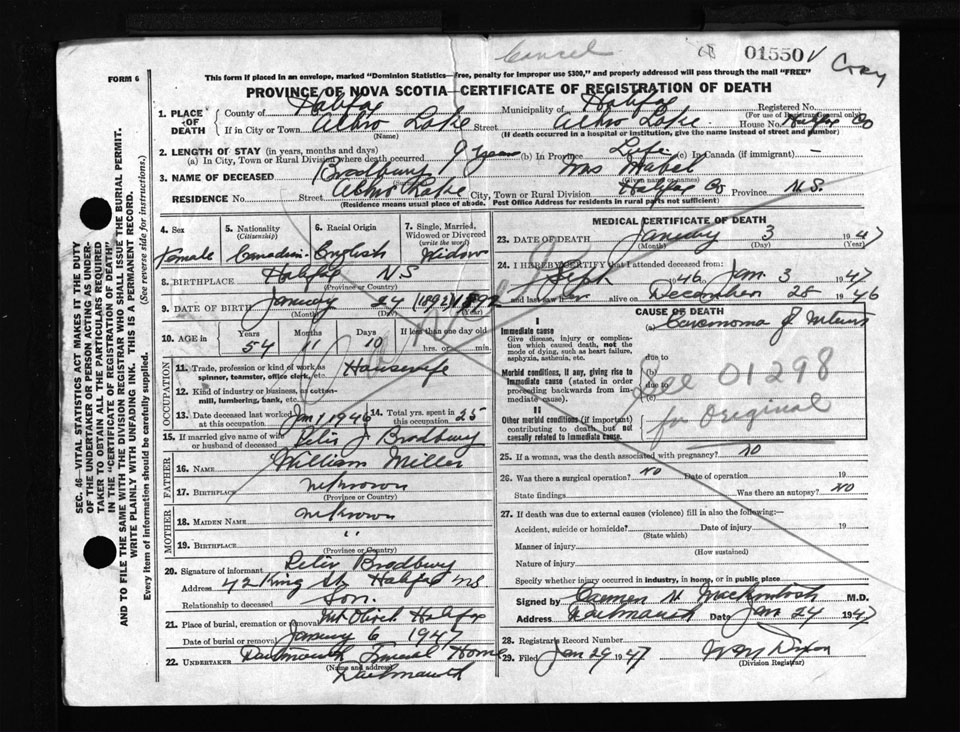 Cancel
01550
Copy
FORM 6
This form if placed in an envelope, marked "Dominion Statistics—free, penalty for improper use $300," and properly addressed will pass through the mail "FREE"
PROVINCE OF NOVA SCOTIA—CERTIFICATE OF REGISTRATION OF DEATH
1. PLACE OF DEATH County of Halifax Municipality of Halifax Registered No.
(For use of Registrar General only)
If in City or Town Albro Lake Street Albro Lake House No. Halifax Co
(Name) (If death occurred in a hospital or institution, give the name instead of street and number)
2. LENGTH OF STAY (in years, months and days)
(a) In City, Town or Rural Division where death occurred 9 years (b) In Province Life (c) In Canada (if immigrant) —
3. NAME OF DECEASED Bradbury Mrs
(Given name or names)
RESIDENCE No. Street Albro Lake City, Town or Rural Division Halifax Co Province N.S.
(Residence means usual place of abode. Post Office Address for residents in rural parts not sufficient)
4. Sex 5. Nationality (Citizenship) 6. Racial Origin 7. Single, Married, Widowed or Divorced (write the word)
Female Canadian English Widow
8. BIRTHPLACE Halifax NS
(Province or Country)
9. DATE OF BIRTH January 24 (1892) 1892
(Month) (Day) (Year)
10. AGE in Years Months Days If less than one day old
54 11 10 hrs. or min.
OCCUPATION
11. Trade, profession or kind of work as spinner, teamster, office clerk, etc. Housewife
12. Kind of industry or business, as cotton-mill, lumbering, bank, etc.
13. Date deceased last worked at this occupation Jan 1 1946 14. Total yrs. spent in 25
15. If married give name of wife or husband of deceased Peter J Bradbury
FATHER
16. NAME William Miller
17. BIRTHPLACE unknown
(Province or Country)
MOTHER
18. MAIDEN NAME unknown
19. BIRTHPLACE "
(Province or Country)
20. Signature of informant Peter Bradbury
Address 42 King St Halifax NS
Relationship to deceased Son.
21. Place of burial, cremation or removal Mt Olivet Halifax
Date of burial or removal January 6 1947
22. UNDERTAKER Dartmouth Funeral Home
(Name and address)
Dartmouth
MEDICAL CERTIFICATE OF DEATH
23. DATE OF DEATH January 3 1947
(Month) (Day) (Year)
24. I HEREBY CERTIFY that I attended deceased from:
Sept 1946 Jan 3 1947
and last saw her alive on December 28 1946
CAUSE OF DEATH
I
Immediate cause
Give disease, injury or complication which caused death, not the mode of dying, such as heart failure, asphyxia, asthenia, etc.
(a) Carcinoma of Uterus
due to
Morbid conditions, if any, giving rise to immediate cause (stated in order proceeding backwards from immediate cause).
(b)
due to
(c)
II
Other morbid conditions (if important) contributing to death but not causally related to immediate cause.
See 01298
for Original
25. If a woman, was the death associated with pregnancy? no
26. Was there a surgical operation? no Date of operation 19
State findings Was there an autopsy? NO
27. If death was due to external causes (violence) fill in also the following:—
Accident, suicide or homicide? Date of injury 19
(State which)
Manner of injury
(How sustained)
Nature of injury
Specify whether injury occurred in industry, in home, or in public place
Signed by Carmen H. Mackintosh M.D.
Address Dartmouth Date Jan 24 1947
28. Registrars Record Number
29. Filed Jan 29 1947
(Division Registrar)
SEC. 46—VITAL STATISTICS ACT MAKES IT THE DUTY
OF THE UNDERTAKER OR PERSON ACTING AS UNDER-
TAKER TO OBTAIN ALL THE PARTICULARS REQUIRED
IN THE "CERTIFICATE OF REGISTRATION OF DEATH"
AND TO FILE THE SAME WITH THE DIVISION REGISTRAR WHO SHALL ISSUE THE BURIAL PERMIT.
WRITE PLAINLY WITH UNFADING INK. THIS IS A PERMANENT RECORD.
Every item of information should be carefully supplied. (See reverse side for instructions.)